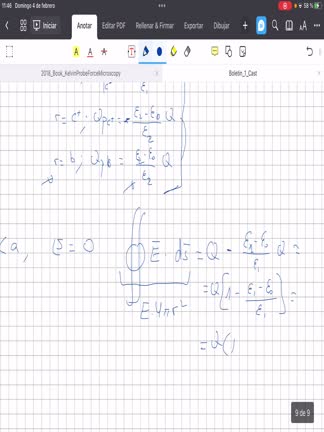 11:46 Domingo 4 de febrero
58 %
Iniciar
Anotar
Editar PDF
Rellenar & Firmar
Exportar
Dibujar
2018_Book_KelvinProbeForceMicroscopy
Boletin_1_Cast
ε₁
r = c⁺; Q_pc⁺ = - (ε₂-ε₀)/ε₂ Q
r = b; Q_pb = (ε₂-ε₀)/ε₂ Q
<a, = 0 ∮ E̅ · ds̅ = Q - (ε₁-ε₀)/ε₁ Q =
E·4πr²
= Q[1 - (ε₁-ε₀)/ε₁] =
= Q(
9 de 9